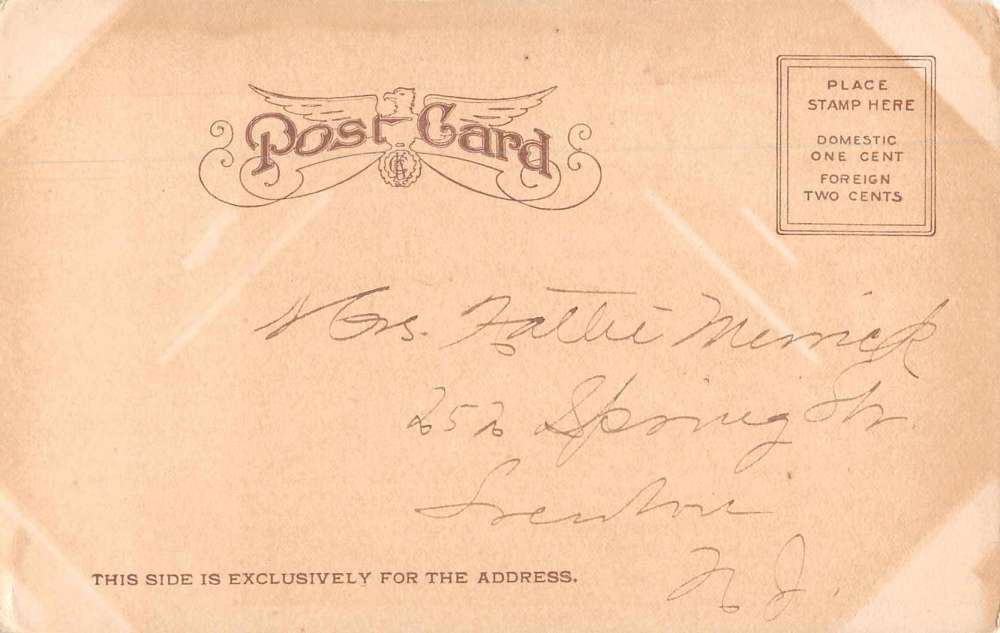 Post Card
PLACE
STAMP HERE
DOMESTIC
ONE CENT
FOREIGN
TWO CENTS
Mrs. Hattie Merrick
252 Spring Str.
Trenton
N. J.
THIS SIDE IS EXCLUSIVELY FOR THE ADDRESS.